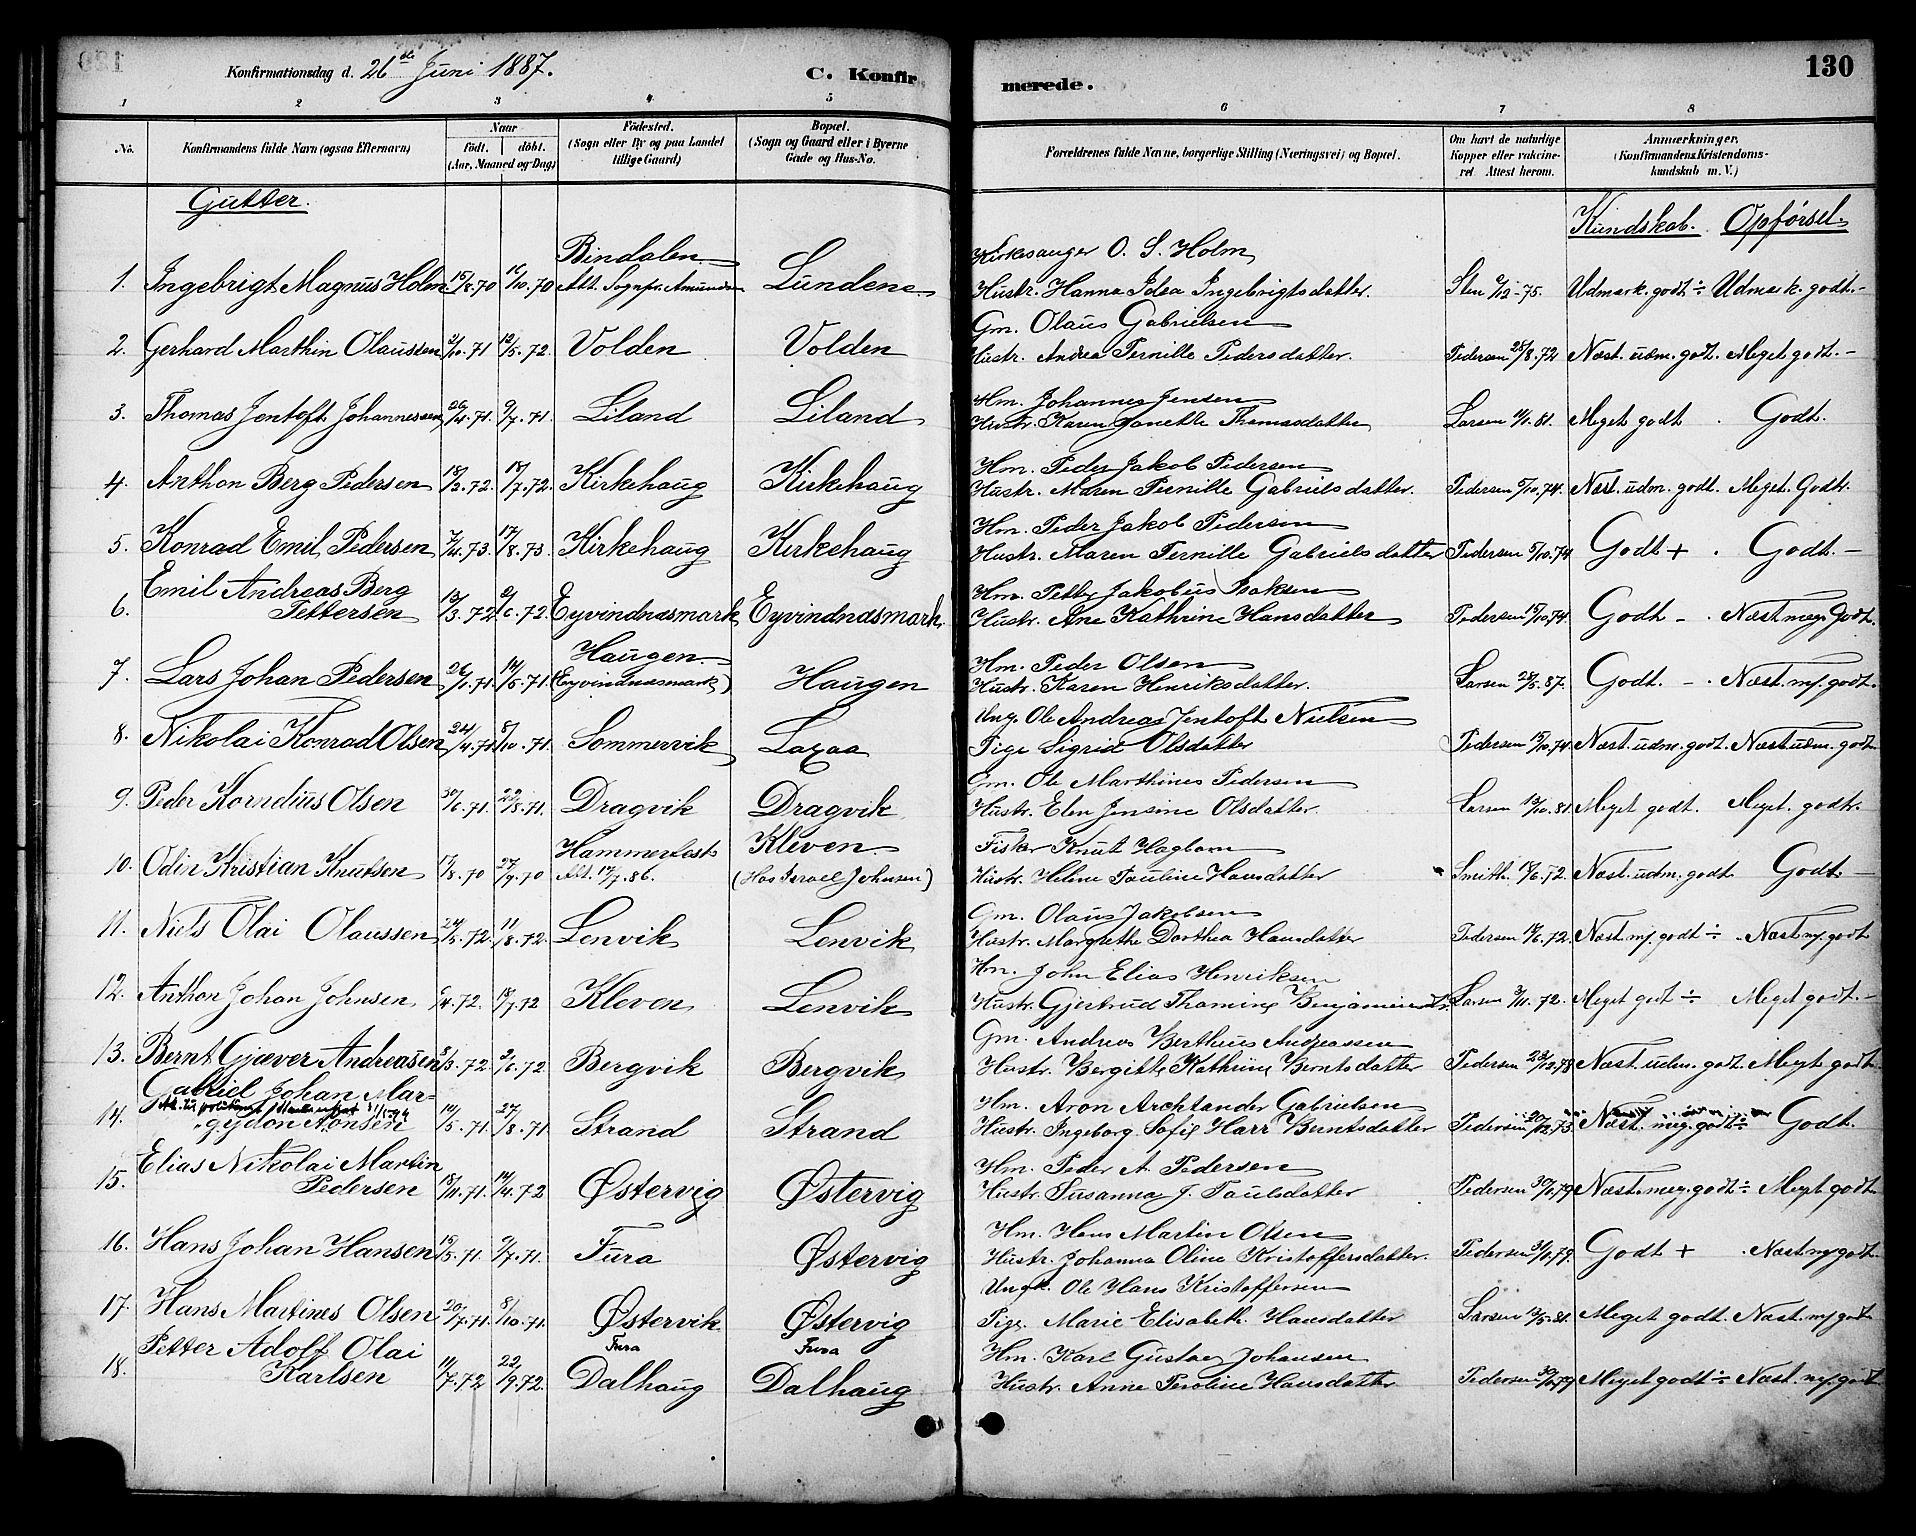 Konfirmationsdag d. 26de Juni 1887. C. Konfirmerede. 130
1 2 3 4 5 6 7 8
No. Konfirmandens fulde Navn (ogsaa Efternavn) Naar födt. döbt. (Aar, Maaned og Dag) Födested. (Sogn eller By og paa Landet tillige Gaard) Bopæl. (Sogn og Gaard eller i Byerne Gade og Hus-No. Forældrenes fulde Navne, borgerlige Stilling (Næringsvei) og Bopæl. Om havt de naturlige Kopper eller vakcineret Attest herom. Anmærkninger. (Konfirmandens Kristendomskundskab m. V.)
Gutter. Kundskab. Opførsel.
Bindalen Kirkesanger O. S. Holm
1. Ingebrigt Magnus Holm 70 /10.70 Att. Sognpr. Amundsen Lundene Hustr. Hanna Idea Ingebrigtsdatter. Sten /12-75. Udmærk. godt ÷ Udmærk. godt.-
Gm. Olaus Gabrielsen
2. Gerhard Marthin Olaussen /10.71 12/5.72 Volden Volden Hustr. Andrea Pernille Pedersdatter. Pedersen 25/8.72 Næst. udm. godt. Meget godt.-
Hm. Johannes Jensen
3. Thomas Jentoft Johannessen 26/4.71. 9/7.71. Liland Liland Hustr. Karen Janette Thomasdatter Larsen 81. Meget godt . Godt.
Hm. Peder Jakob Pedersen
4. Anthon Berg Pedersen 18/2.72. /7.72. Kirkehaug Kirkehaug Hustr. Maren Pernille Gabrielsdatter. Pedersen 5/10.74. Næst. udm. godt. Meget Godt.
Hm. Peder Jakob Pedersen
5. Konrad Emil Pedersen 7/4.73. 17/8.73. Kirkehaug Kirkehaug Hustr. Maren Pernille Gabrielsdatter Pedersen 5/10.74 Godt + . Godt.-
Emil Andreas Berg Hm. Petter Jakobus Isaksen
6. Pettersen 13/3.72 /6.72 Eyvindnæsmark Eyvindnæsmark Hustr. Ane Kathrine Hansdatter Pedersen /10.74. Godt - . Næst meg. godt.
Haugen Hm. Peder Olsen
7. Lars Johan Pedersen 26/1.71. 14/5.71. (Eyvindnæsmark) Haugen Hustr. Karen Henriksdatter. Larsen /5.87. Godt. - . Næst. mg. godt.
Ung. Ole Andreas Jentoft Nielsen
8. Nikolai Konrad Olsen 24/4.71 8/10.71. Sommervik Laxaa Pige Sigrid Olsdatter Pedersen /10.74 Næst. udm. godt. Næst udm. godt
Gm. Ole Marthines Pedersen
9. Peder Kornelius Olsen 30/6.71. /8.71. Dragvik Dragvik Hustr. Elen Jensine Olsdatter. Larsen /10.81. Meget godt. Meget. godt.
Hammerfest Kleven. Fisker Knut Hagbom
10. Odin Kristian Knutsen /8.70 27/9.70 Att. 17/7.86. (Hos Israel Johnsen) Hustr. Helene Pauline Hansdatter Smith. /6.72. Næst. udm. godt. Godt.-
Gm. Olaus Jakobsen
11. Niels Olai Olaussen 24/5.72. 11/8.72. Lenvik Lenvik Hustr. Margrethe Dorthea Hansdatter Pedersen /6.72. Næst mg. godt ÷ . Næst mg. godt
Hm. John Elias Henriksen
12. Anthon Johan Johnsen /4.72. 18/7.72 Kleven Lenvik Hustr. Gjertrud Thomine Benjaminsd. Larsen 3/11.72. Meget godt ÷ Meget godt.-
Gm. Andreas Berthius Andreassen
13. Bernt Gjæver Andreassen 3/3.72 2/6.72 Bergvik Bergvik Hustr. Bergitte Kathrine Berntsdatter Pedersen 23/12.79 Næst. udm. godt. Meget godt.
Gabriel Johan Mar- Hm. Aron Arctander Gabrielsen
14. gydon Aronsen 14/5.71. 27/8.71 Strand Strand Hustr. Ingeborg Sofie Harr Berntsdatter Pedersen Næst. meg. godt ÷ Godt.
Elias Nikolai Martin Hm. Peder A. Pedersen
15. Pedersen 18/11.71. 14/4.72 Østervig Østervig Hustr. Susanna J. Paulsdatter Pedersen 79 Næst. meg. godt ÷ Meget godt
Hm. Hans Martin Olsen
16. Hans Johan Hansen /5.71. 9/7.71. Fura Østervig Hustr. Johanna Oline Kristoffersdatter. Pedersen 79. Godt + . Næst mg godt.
Ungk. Ole Hans Kristoffersen
17. Hans Martines Olsen 20/7.71. 8/10.71. Østervik Østervig Pige Marie Elisabeth Hansdatter Larsen /5.81. Meget godt. Næst. mg godt
Petter Adolf Olai Fura Fura Hm. Karl Gustav Johansen
18. Karlsen 11/7.72 22/9.72. Dalhaug Dalhaug Hustr. Anne Peroline Hansdatter Pedersen 79 Meget godt ÷ Næst. mg. godt